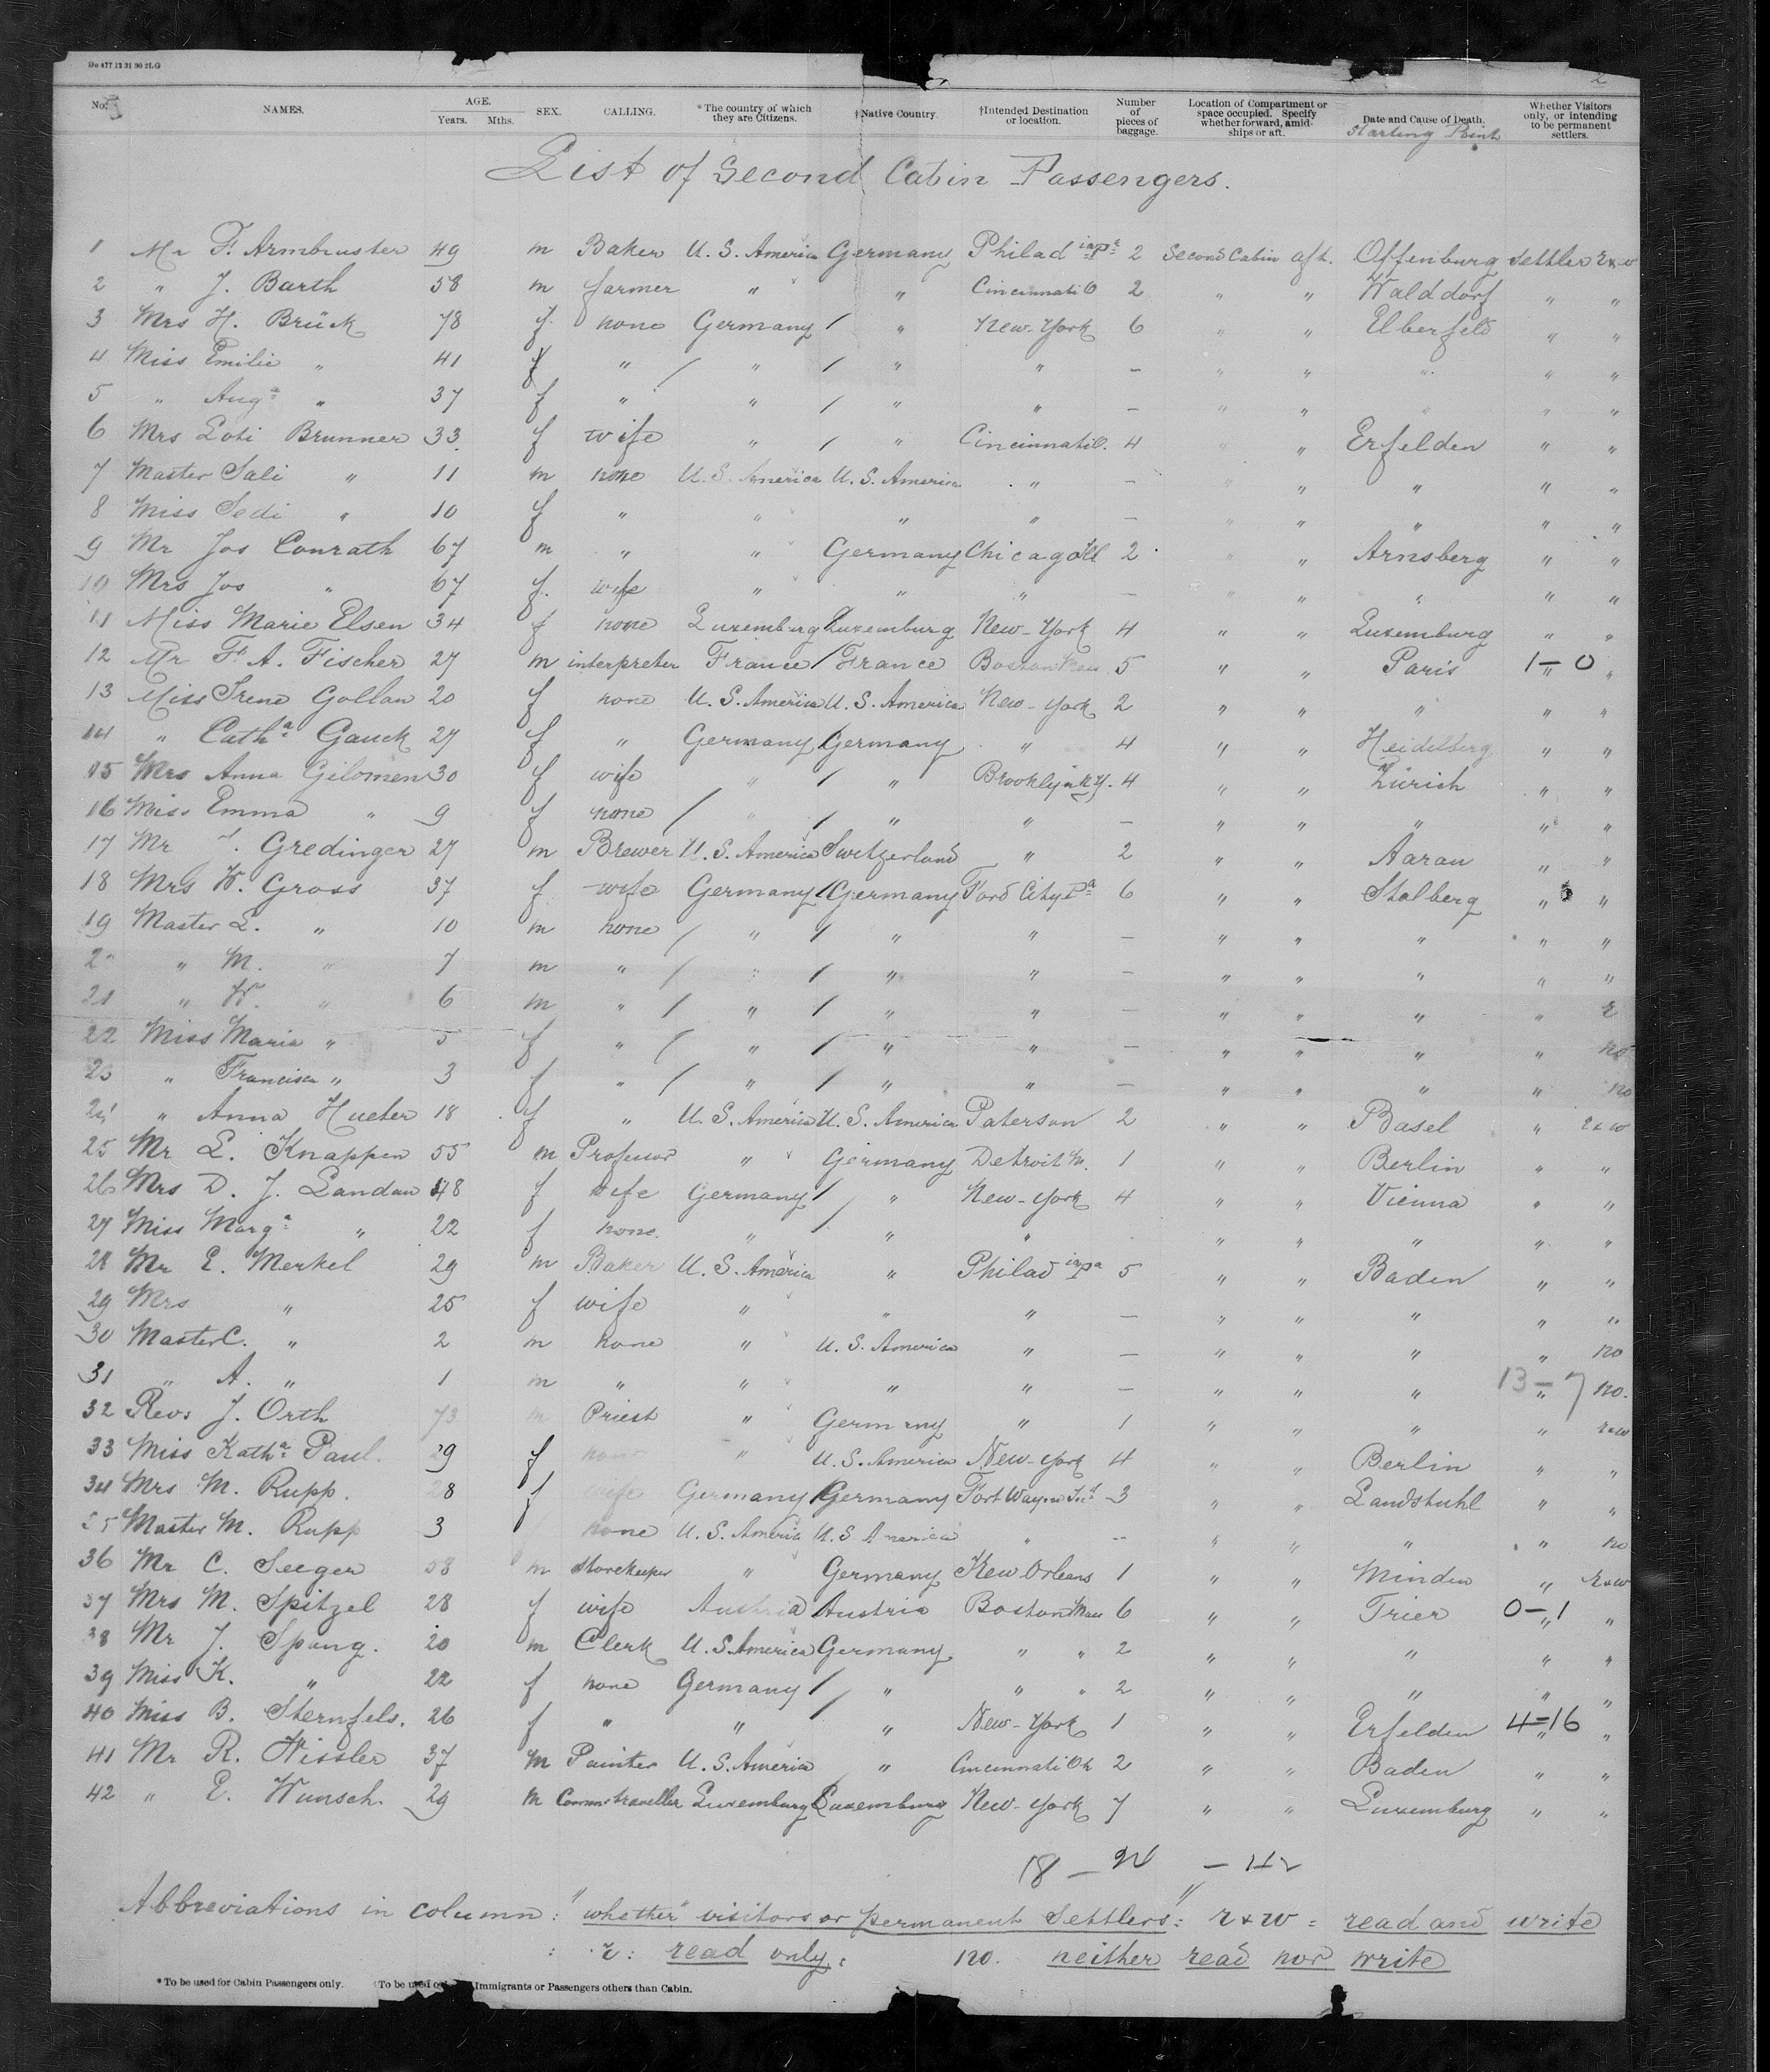 Do 477 12 31 90 2LG
2
No. NAMES. AGE. Years. Mths. SEX. CALLING. *The country of which they are Citizens. †Native Country †Intended Destination or location. Number of pieces of baggage. Location of Compartment or space occupied. Specify whether forward, amidships or aft. Date and Cause of Death. Starting Point Whether Visitors only, or intending to be permanent settlers.
List of Second Cabin Passengers.
1 Mr F. Armbruster 49 m Baker U. S. America Germany Philad ia Pa 2 Second Cabin aft. Offenburg settler r&w
2 " J. Barth 58 m farmer " " Cincinnati O 2 " " Walddorf " "
3 Mrs H. Brück 78 f. none Germany / " New-York 6 " " Elberfeld " "
4 Miss Emilie " 41 f " / " / " " — " " " " "
5 " Auga " 37 f " " / " " — " " " " "
6 Mrs Loti Brunner 33 f wife " / " Cincinnati O. 4 " " Erfelden " "
7 Master Sali " 11 m none U. S. America U. S. America " — " " " " "
8 Miss Sedi " 10 f " " " " — " " " " "
9 Mr Jos Conrath 67 m " " Germany Chicago Ill 2 " " Arnsberg " "
10 Mrs Jos " 67 f. wife " " " — " " " " "
11 Miss Marie Elsen 34 f none Luxemburg / Luxemburg New-York 4 " " Luxemburg " "
12 Mr F. A. Fischer 27 m interpreter France / France Boston Mass 5 " " Paris 1—0 " "
13 Miss Irene Gollan 20 f none U. S. America U. S. America New-York 2 " " " " "
14 " Catha Gauck 27 f " Germany / Germany " 4 " " Heidelberg " "
15 Mrs Anna Gilomen 30 f wife " / " Brooklyn N.Y. 4 " " Zürich " "
16 Miss Emma " 9 f none / " / " " — " " " " "
17 Mr Gredinger 27 m Brewer U. S. America Switzerland " 2 " " Aarau " "
18 Mrs W. Gross 37 f wife Germany / Germany Ford City Pa 6 " " Stolberg " "
19 Master L. " 10 m none / " / " " — " " " " "
20 " M. " 7 m " / " / " " — " " " " "
21 " W. " 6 m " / " / " " — " " " " r
22 Miss Maria " 5 f " / " / " " — " " " " no
23 " Francisca " 3 f " / " / " " — " " " " no
24 " Anna Hueter 18 f " U. S. America U. S. America Paterson 2 " " Basel " r&w
25 Mr L. Knappen 55 m Professor " Germany Detroit M. 1 " " Berlin " "
26 Mrs D. J. Landau 48 f wife Germany / " New-York 4 " " Vienna " "
27 Miss Marga " 22 f none " / " " " " " " "
28 Mr E. Merkel 29 m Baker U. S. America " Philad ia Pa 5 " " Baden " "
29 Mrs " 25 f wife " " " — " " " " "
30 Master C. " 2 m none " U. S. America " — " " " " no
31 " A. " 1 m " " " " — " " " 13—7 " no.
32 Rev. J. Orth 73 m Priest " Germany " 1 " " " " r&w
33 Miss Katha Paul. 29 f none " U. S. America New-York 4 " " Berlin " "
34 Mrs M. Rupp. 28 f wife Germany / Germany Fort Wayne Ind 3 " " Landstuhl " "
35 Master M. Rupp 3 f none U. S. America U. S America " — " " " " no
36 Mr C. Seeger 58 m storekeeper " Germany New Orleans 1 " " Minden " r&w
37 Mrs M. Spitzel 28 f wife Austria / Austria Boston Mass 6 " " Trier 0—1 " "
38 Mr J. Spang. 20 m Clerk U. S. America Germany " " 2 " " " " "
39 Miss K. " 22 f none Germany / " " " 2 " " " " "
40 Miss B. Sternfels. 26 f " " / " New-York 1 " " Erfelden 4—16 " "
41 Mr R. Wissler 37 m Painter U. S. America " Cincinnati Oh 2 " " Baden " "
42 " E. Wunsch. 29 m Comm. traveller Luxemburg / Luxemburg New-York 7 " " Luxemburg " "
18 — 24 — 42
Abbreviations in column: "whether" visitors or permanent Settlers": r&w = read and write
: r: read only: no. neither read nor write
*To be used for Cabin Passengers only. †To be used Immigrants or Passengers others than Cabin.